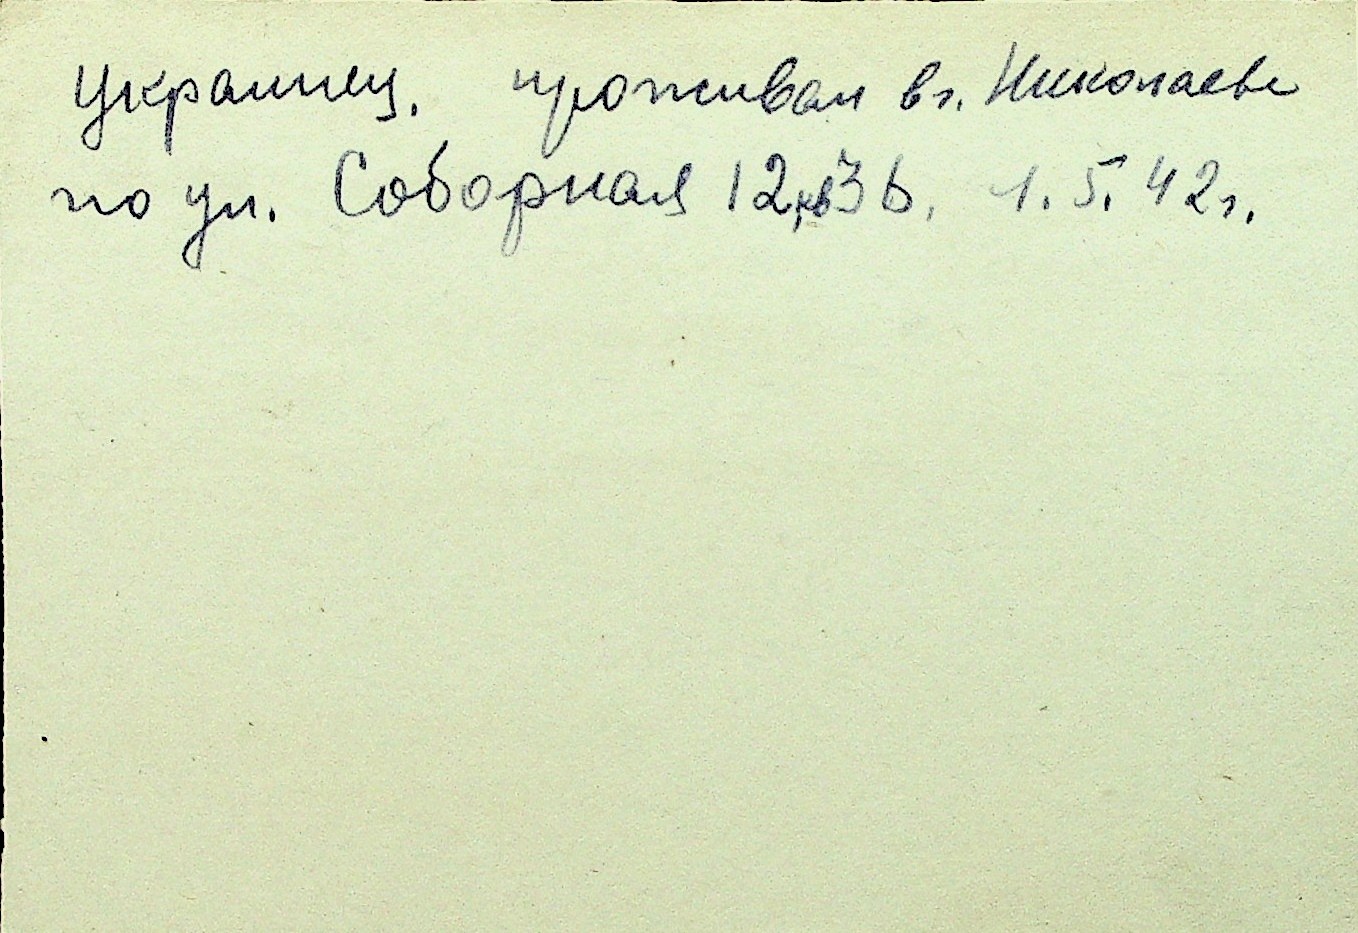 Украинец, проживал в г. Николаеве
по ул. Соборная 12, кв 36. 1.5.42 г.